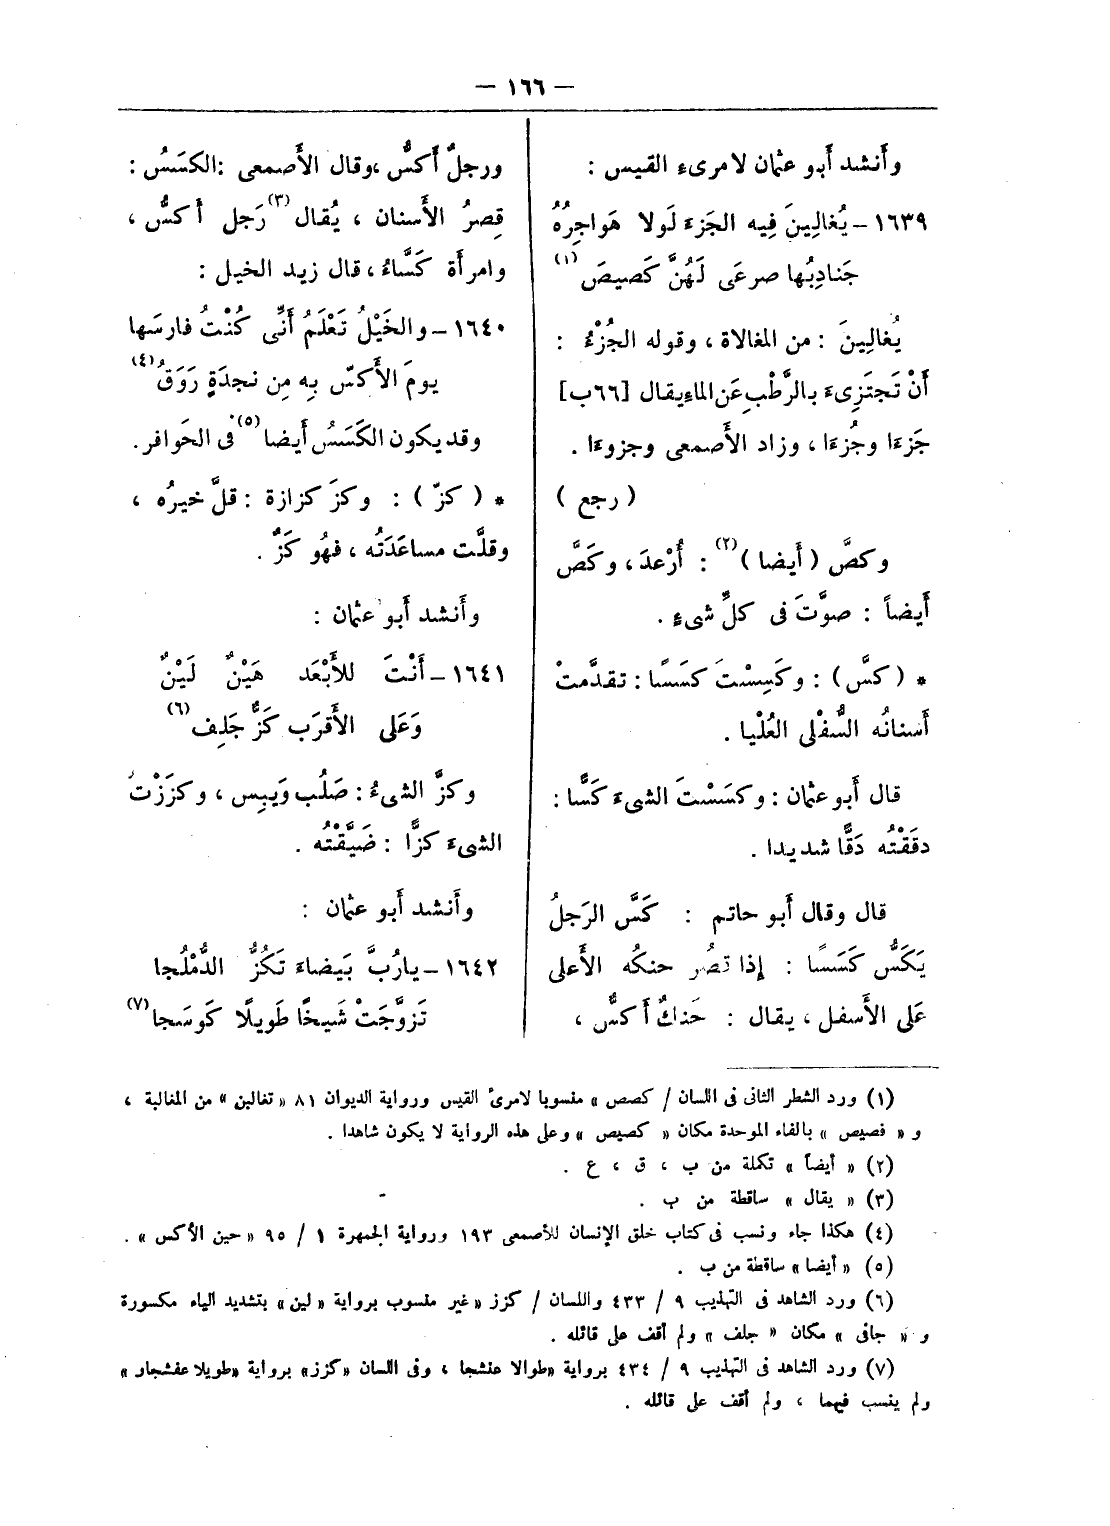 — ١٦٦ —
وأنشد أبو عثمان لامرىء القيس :
١٦٣٩ – يُغالِينَ فِيه الجَزءَ لَولا هَواجِرُهُ
جَنادِبُها صرعَى لَهُنَّ كَصيصَ (١)
يُغالِينَ : من المغالاة ، وقوله الجُزْءُ :
أَنْ تَجتَزِىءَ بالرَّطْبِ عَن الماءِ يقال [٦٦ب]
جَزءَا وجُزءَا ، وزاد الأَصمعى وجزوءَا .
( رجع )
وكصَّ ( أَيضا ) (٢) : أُرْعدَ ، وكَصَّ
أَيضاً : صوَّتَ فى كلِّ شىءٍ .
* ( كسَّ ) : وكَسِسْتَ كسَسًا : تقدَّمتْ
أَسنانُه السُّفْلى العُلْيا .
قال أَبو عثمان : وكسَسْتَ الشىءَ كَسًّا :
دقَقْتُه دَقًّا شديدا .
قال وقال أَبو حاتم : كَسَّ الرَجلُ
يَكَسُّ كَسَسًا : إذا تصُر حنكُه الأَعلى
عَلى الأَسفل ، يقال : حَنكٌ أَكسُّ ،
ورجلٌ أَكسُّ ، وقال الأَصمعى : الكسَسُ :
قِصرُ الأَسنان ، يُقال (٣) رَجل أَكسُّ ،
وامرأَة كَسَّاءُ ، قال زيد الخيل :
١٦٤٠ – والخَيْلُ تَعْلَمُ أَنِّى كُنْتُ فارسَها
يومَ الأَكسّ بِه مِن نجدَةٍ رَوَقُ (٤)
وقد يكون الكَسَسُ أَيضا (٥) فى الحَوافر .
* ( كزّ ) : وكزَ كزازة : قلَّ خيرُه ،
وقلَّت مساعَدَتُه ، فهُو كَزٌّ .
وأَنشد أَبو عثمان :
١٦٤١ – أَنْتَ للأَبْعَد هَيْنٌ لَيْنٌ
وَعَلى الأَقرَب كَزٌّ جَلِف (٦)
وكزَّ الشىءُ : صَلُب وَيبِس ، وكزَزْتُ
الشىءَ كزًّا : ضَيَّقْتُه .
وأَنشد أَبو عثمان :
١٦٤٢ – يارُبَّ بَيضاءَ تَكُزُّ الدُّمْلُجا
تَزوَّجَتْ شَيخًا طَويلًا كَوسَجا (٧)
(١) ورد الشطر الثانى فى اللسان / كصص » منسوبا لامرئ القيس ورواية الديوان ٨١ « تغالبن » من المغالبة ،
و « فصيص » بالفاء الموحدة مكان « كصيص » وعلى هذه الرواية لا يكون شاهدا .
(٢) « أيضاً » تكملة من ب ، ق ، ع .
(٣) « يقال » ساقطة من ب .
(٤) هكذا جاء ونسب فى كتاب خلق الإنسان للأصمعى ١٩٣ ورواية الجمهرة ١ / ٩٥ « حين الأكس » .
(٥) « أيضا » ساقطة من ب .
(٦) ورد الشاهد فى التهذيب ٩ / ٤٣٣ واللسان / كزز « غير منسوب برواية « لين » بتشديد الياء مكسورة
و « جافى » مكان « جلف » ولم أقف على قائله .
(٧) ورد الشاهد فى التهذيب ٩ / ٤٣٤ برواية «طوالا عنشجا ، وفى اللسان «كزز» برواية «طويلا عفشجا» »
ولم ينسب فيهما ، ولم أقف على قائله .